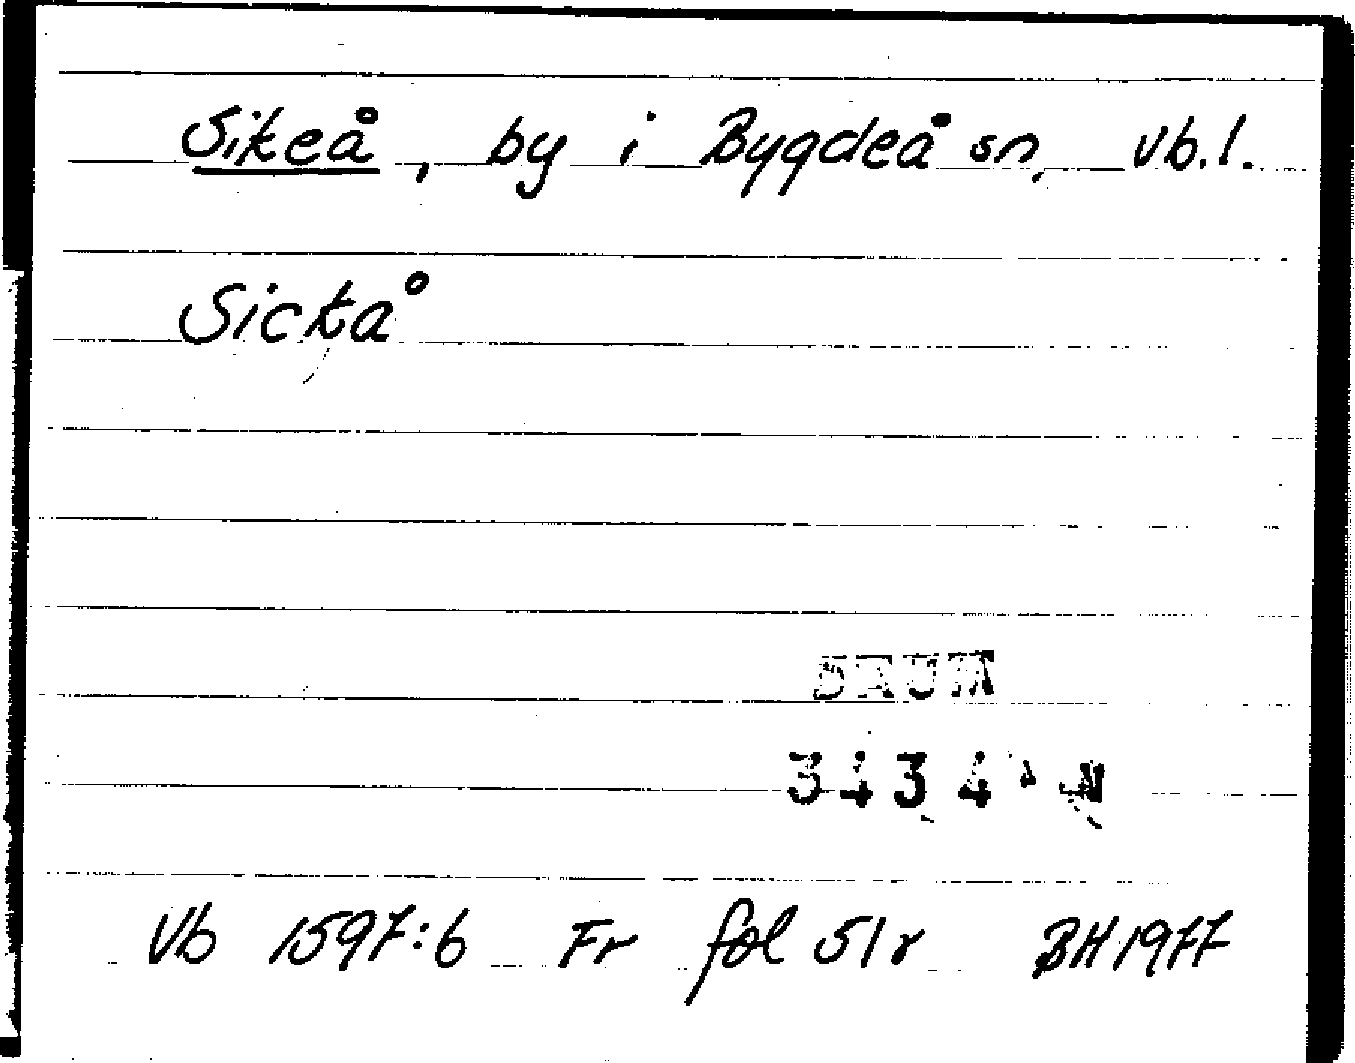 Sikeå, by i Bygdeå sn, Vb.l.
Sickå
DAUM
3434
Vb 1597:6 Fr fol 51r BH 1977